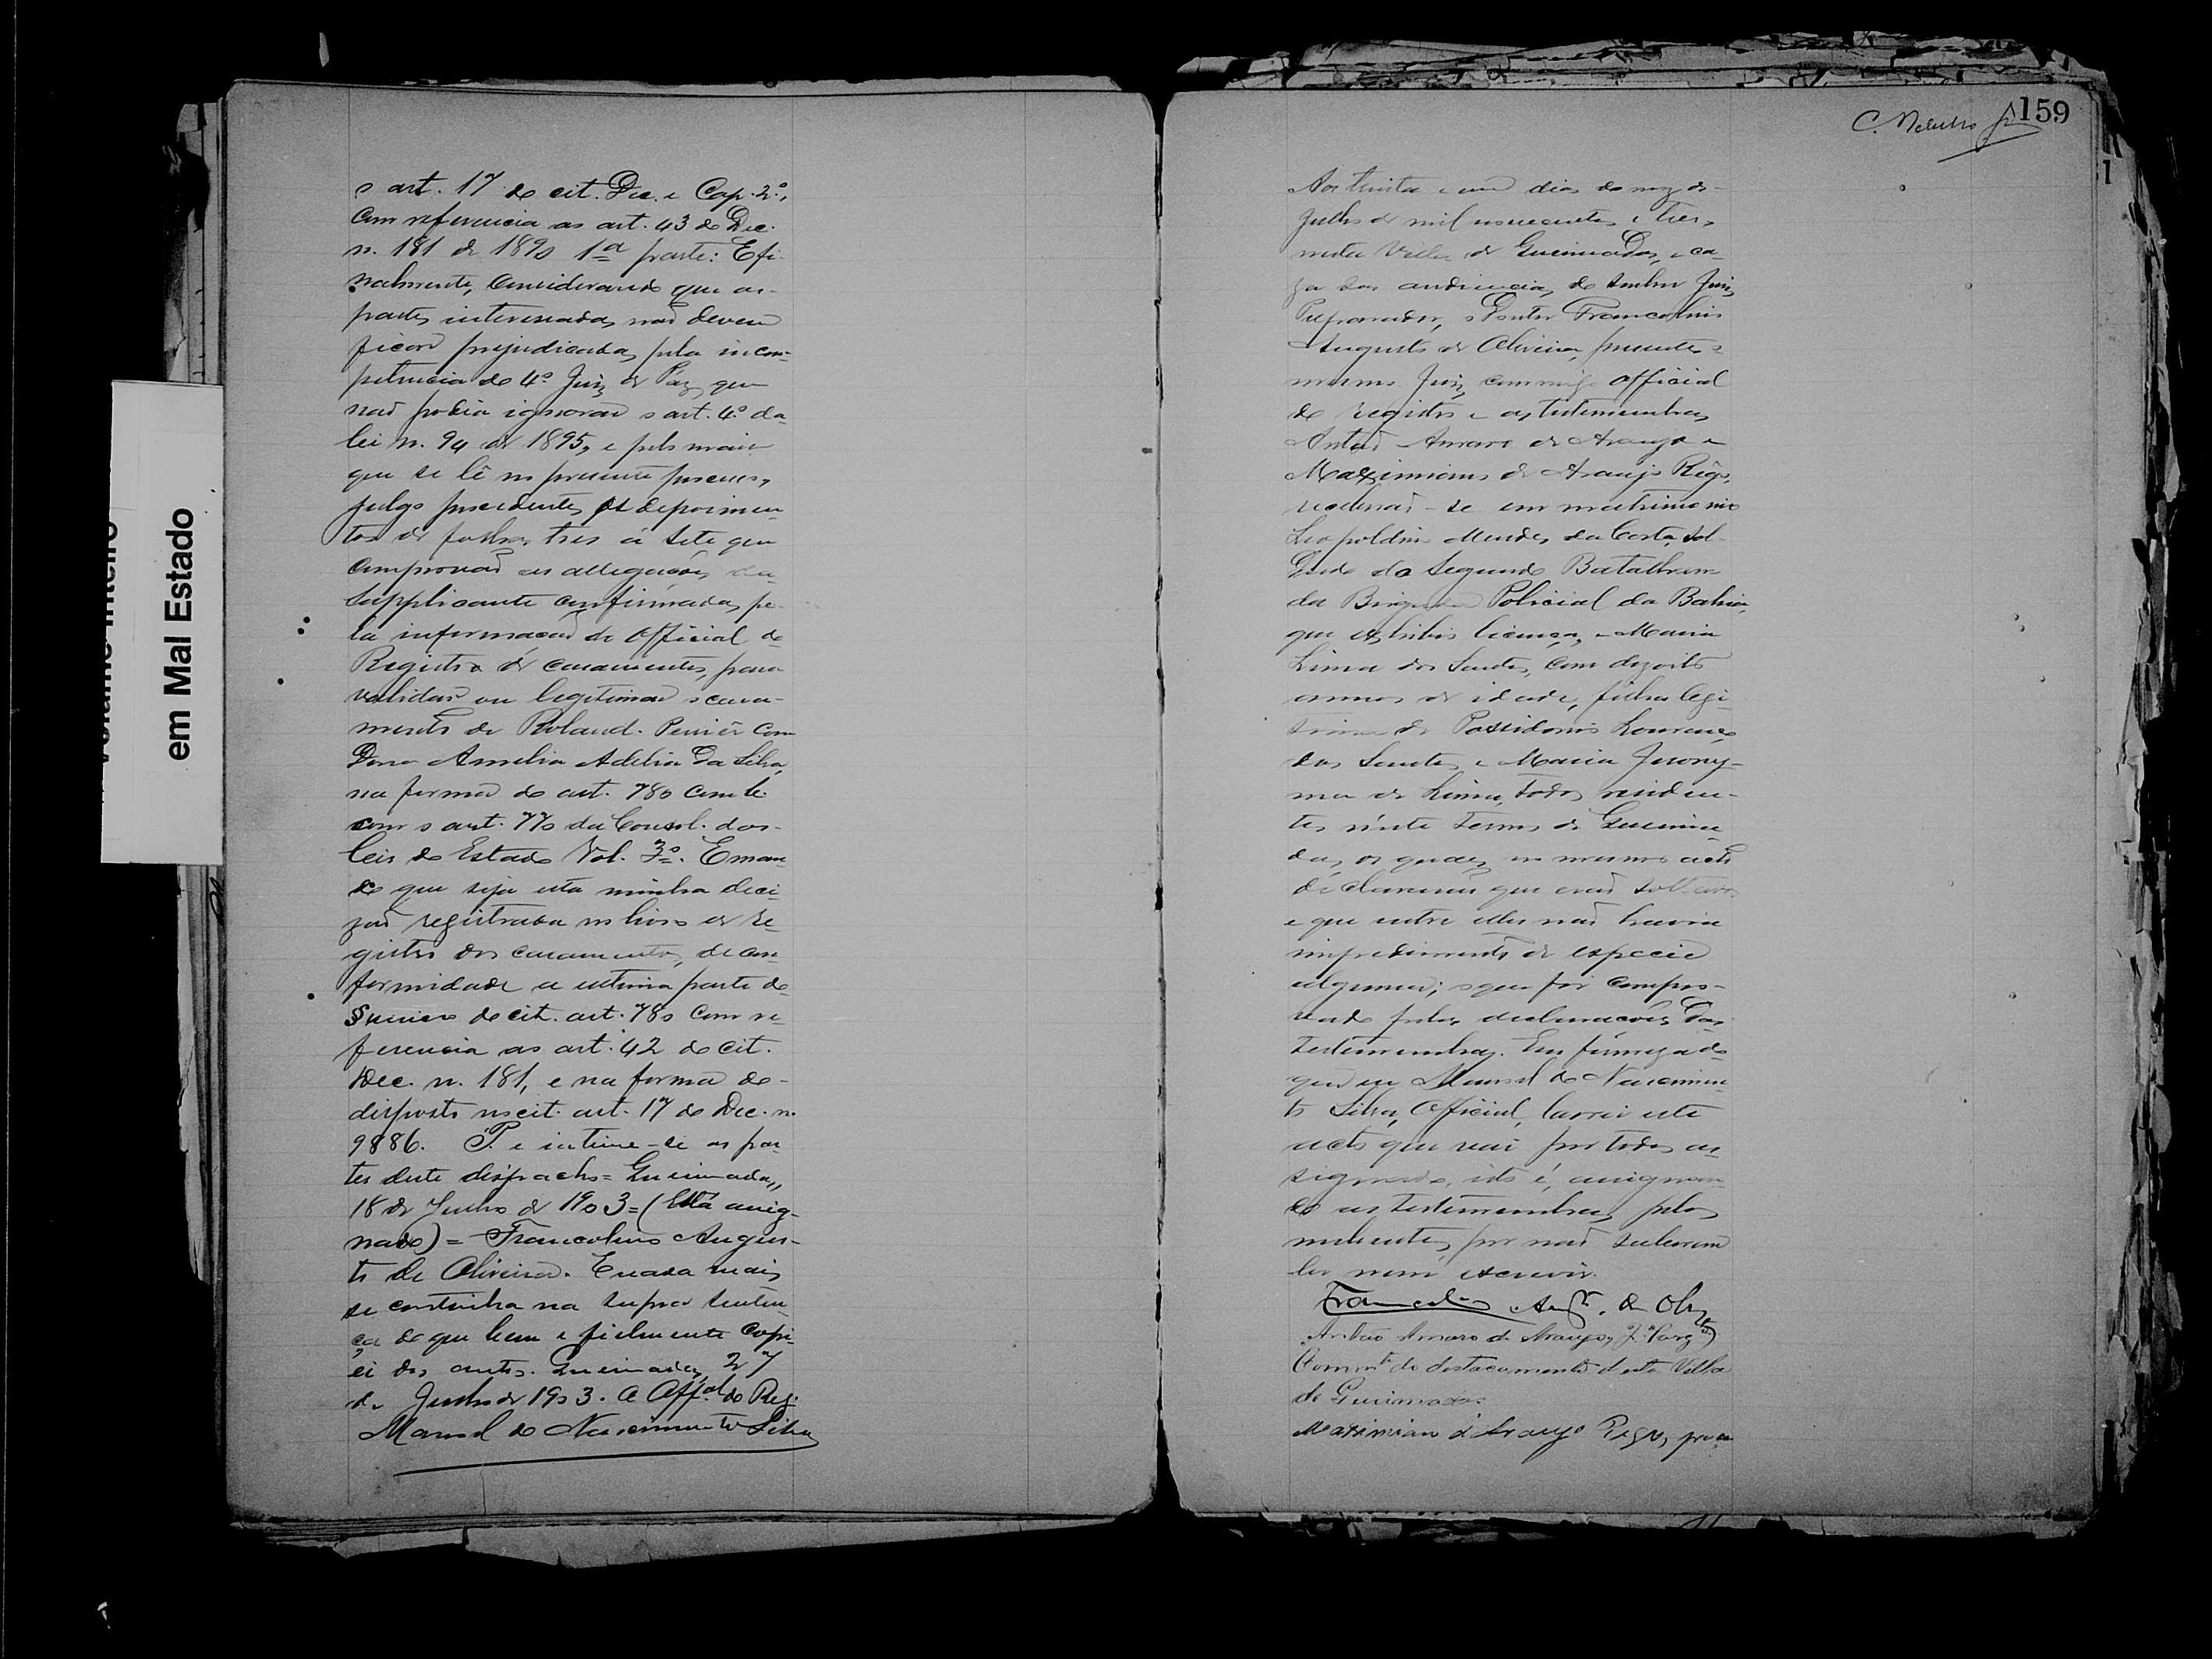 o art. 17 do cit. Dec. e Cap. 2º,
com referencia ao art. 43 do Dec.
n. 181 de 1890 1ª parte: E fi-
nalmente, considerando que as
partes interessadas não devem
ficar prejudicadas pela incom-
petencia do 4º Juiz de Paz, que
não podia ignorar o art. 4º da
lei n. 94 de 1895, e pelo mais
que se lê no presente processo,
julgo procedentes os depoimen-
tos de folhas tres á sete que
comprovão as allegações da
supplicante confirmadas pe-
la informação do Official do
Registro de casamentos, para
validar ou legitimar o casa-
mento de Roland Perier com
Dona Amelia Adelia da Silva,
na forma do art. 780
com o art. 770 da Consol. das
leis do Estado Vol. 3º. E man-
do que seja esta minha deci-
zão registrada no livro de re-
gistro dos casamentos, de con-
formidade a ultima parte do
§ unico do cit. art. 780 com re-
ferencia ao art. 42 do cit.
Dec. n. 181, e na forma do
disposto no cit. art. 17 do Dec. n.
9886. P. e intime-se as par-
tes deste despacho = Queimadas,
18 de Junho de 1903 = (Está assig-
nado) = Francolino Augus-
to de Oliveira. E nada mais
se continha na supra senten-
ça do que bem e fielmente copi-
ei dos autos. Queimadas, 27
de Junho de 1903. O Offal do Reg.
Manoel do Nascimento Silva
159
Aos trinta e um dias do mez de
Julho de mil novecentos e tres,
nesta Villa de Queimadas, e ca-
za das audiencias do Senhor Juiz
Preparador, o Doutor Francolino
Augusto de Oliveira, presentes o
mesmo Juiz, commigo Official
do registro e as testemunhas
Antão Amaro de Araujo e
Maximiano de Araujo Rêgo,
receberão-se em matrimonio
Leopoldino Mendes da Costa, sol-
dado do Segundo Batalham
da Brigada Policial da Bahia,
que exhibio licença, e Maria
Lima dos Santos, com dezoito
annos de idade, filha legi-
tima de Possidonio Lourenço
dos Santos e Maria Jerony-
ma de Lima, todos residen-
tes n'este Termo de Queima-
das, os quaes, no mesmo acto
declararão que erão solteiros
e que entre elles não havia
impedimento de especie
alguma; o que foi compro-
vado pelas declarações das
testemunhas. Em firmeza do
que eu Manoel do Nascimen-
to Silva, Official, lavrei este
acto que vai por todos as-
signado, isto é, assignan-
do as testemunhas pelos
nubentes, por não saberem
ler nem escrever.
Francolino Augto. de Olivra
Antão Amaro de Araujo, 2º Sargto
Commte do destacamento desta Villa
de Queimadas
Maximiano d'Araujo Rego,
em Mal Estado